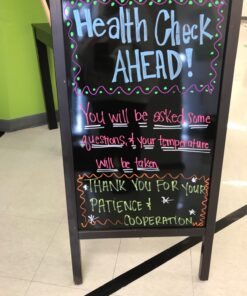 Health Check
AHEAD!
You will be asked some
questions, & your temperature
will be taken
THANK YOU FOR YOUR
PATIENCE &
COOPERATION